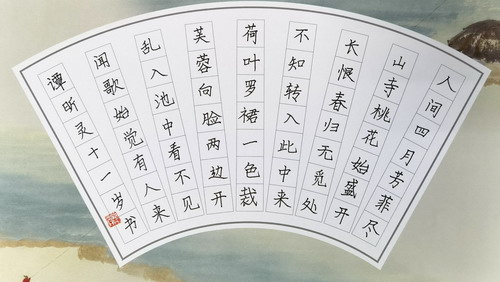 人间四月芳菲尽
山寺桃花始盛开
长恨春归无觅处
不知转入此中来
荷叶罗裙一色裁
芙蓉向脸两边开
乱入池中看不见
闻歌始觉有人来
谭昕灵十一岁书